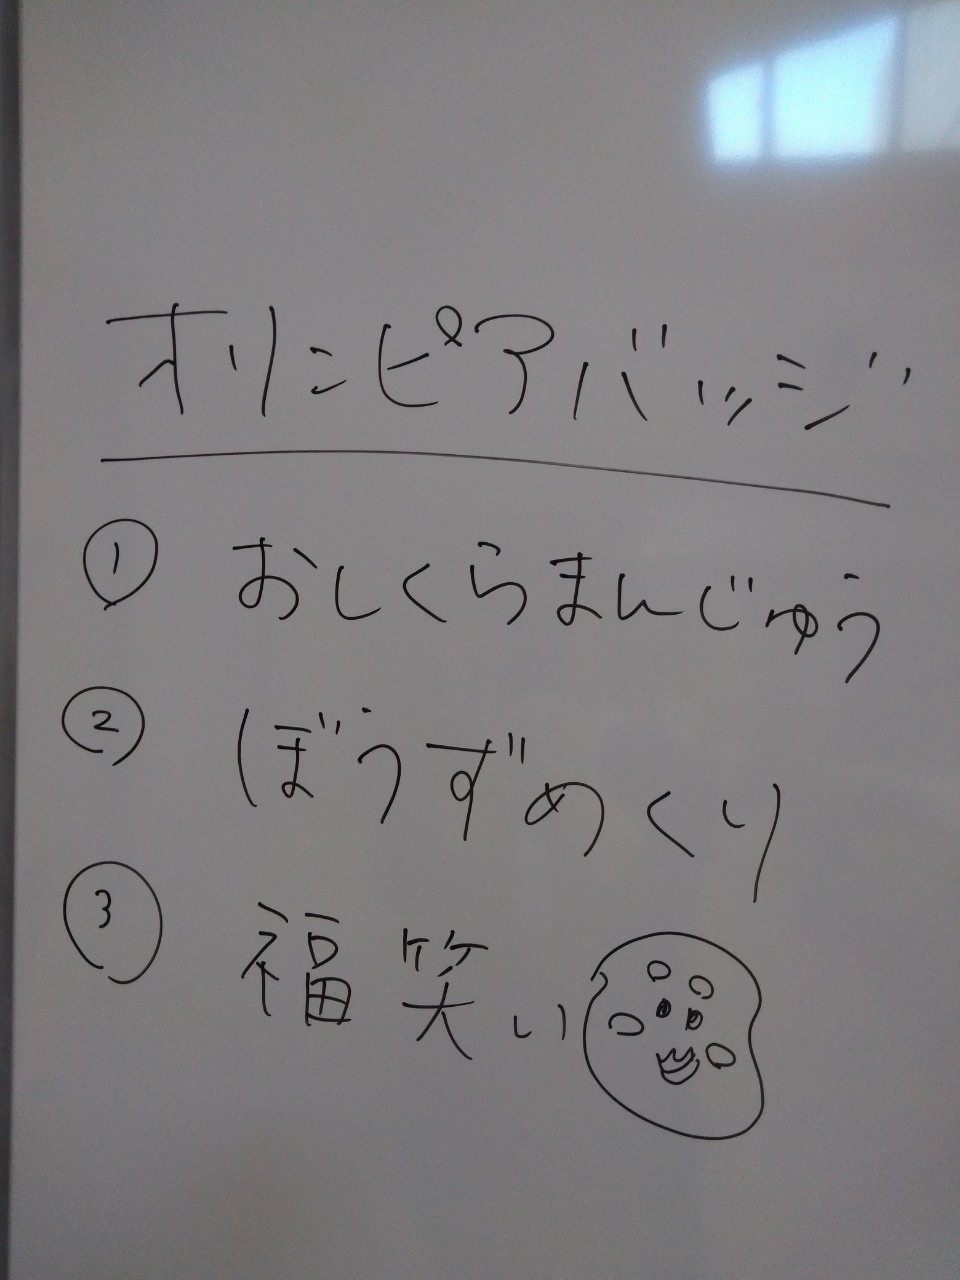 オリンピアバッジ
① おしくらまんじゅう
② ぼうずめくり
③ 福笑い